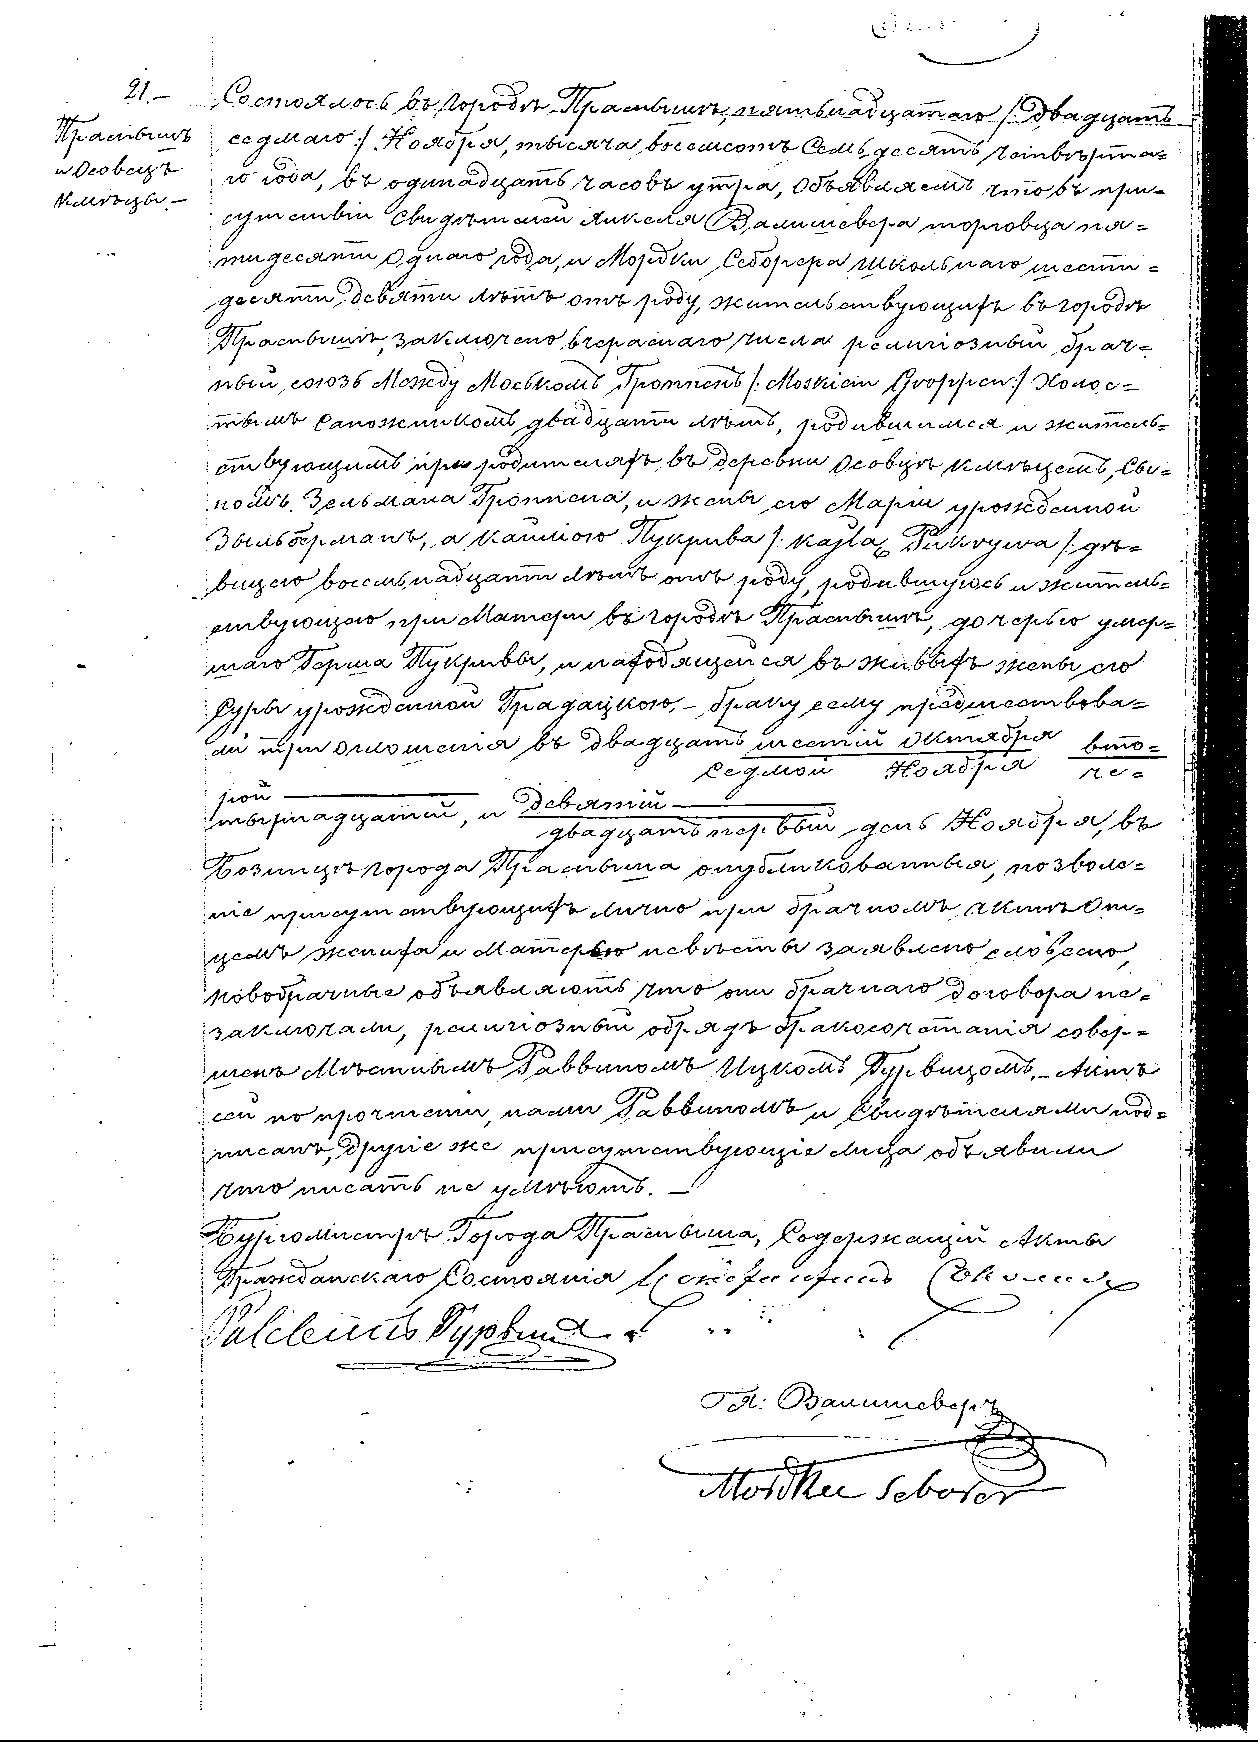 21.—
Праснышъ
и Осовецъ
Кмѣцы.—
Состоялось въ городѣ Праснышѣ, пятьнадцатаго /: двадцать
седмаго :/ Ноября, тысяча восемьсотъ семьдесятъ четвѣрта-
го года, въ одинадцать часовъ утра, Объявляемъ что въ при-
сутствіи свидѣтелей Янкеля Валишевера торговца пя-
тидесяти одного года, и Мордки Себорера школьнаго шести-
десяти девяти лѣтъ отъ роду, жительствующихъ въ городѣ
Праснышѣ, заключено вчерашнаго числа религіозный брач-
ный союзъ Между Моськомъ Гроппенъ /: Moskiem Groppen :/ Холос-
тымъ сапожникомъ двадцати лѣтъ, родившимся и житель-
ствующимъ при родителяхъ въ деревни Осовцѣ Кмѣцемъ, Сы-
номъ Зельмана Гроппена, и жены его Маріи урожденной
Зыльберманъ, а Кайлою Пукрива /: Kajla Pukrywa :/ дѣ-
вицею восемьнадцати лѣтъ отъ роду, родившуюсь и житель-
ствующею при Матери въ городѣ Праснышѣ, дочерью умер-
шаго Герша Пукривы, и находящейся въ живыхъ жены его
Суры урожденной Градацкою,— браку сему предшествова-
ли три оглошенія въ двадцать шестый Октября вто-
седмой Ноября че-
рой
тырнадцатый, и девятій
двадцать первый день Ноября, въ
Бозницѣ города Прасныша опубликованныя, позволе-
ніе присутствующихъ лично при брачномъ актѣ От-
цемъ жениха и Матерью невѣсты заявлено словесно,
новобрачные объявляютъ что они брачнаго договора не-
заключали, религіозный обрядъ бракосочетанія совер-
шенъ Мѣстнымъ Раввиномъ Ицкомъ Гурвицомъ.— Актъ
сей по прочтеніи, нами Раввиномъ и Свидѣтелями под-
писанъ, другіе же присутствующіе лица объявили
что писать не умѣютъ.—
Бургомистръ Города Прасныша, Содержащій Акты
Гражданскаго Состоянія
Гурвицъ
Я: Валишеверъ
Mordke Seborer